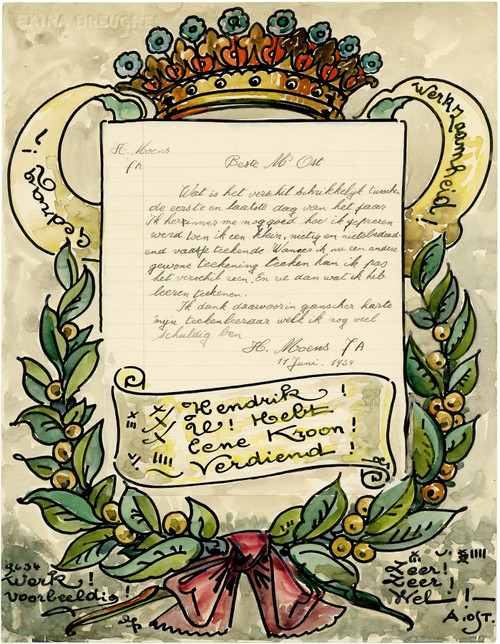 EXTRA BREUGHEL
Gedrag 2!
Werkzaamheid!
H. Moens
7A
Beste Mr Ost
Wat is het verschil schrikkelijk tusschen
de eerste en laatste dag van het jaar
Ik herinner me nog goed hoe ik geprezen
werd toen ik een klein, nietig en nietsbeduid-
end vaasje teekende. Wanneer ik nu een andere
gewone teekening teeken kan ik pas
het verschil zien. En zie dan wat ik heb
leeren teekenen.
Ik dank daarvoor in ganscher harte
mijn teekenleeraar wien ik nog veel
schuldig ben
H. Moens 7A
11 Juni. 1934
Hendrik!
U! Hebt
Eene Kroon!
Verdiend!
Werk!
Voorbeeldig!
Zeer!
Zeer!
Wel!-
A. OST.